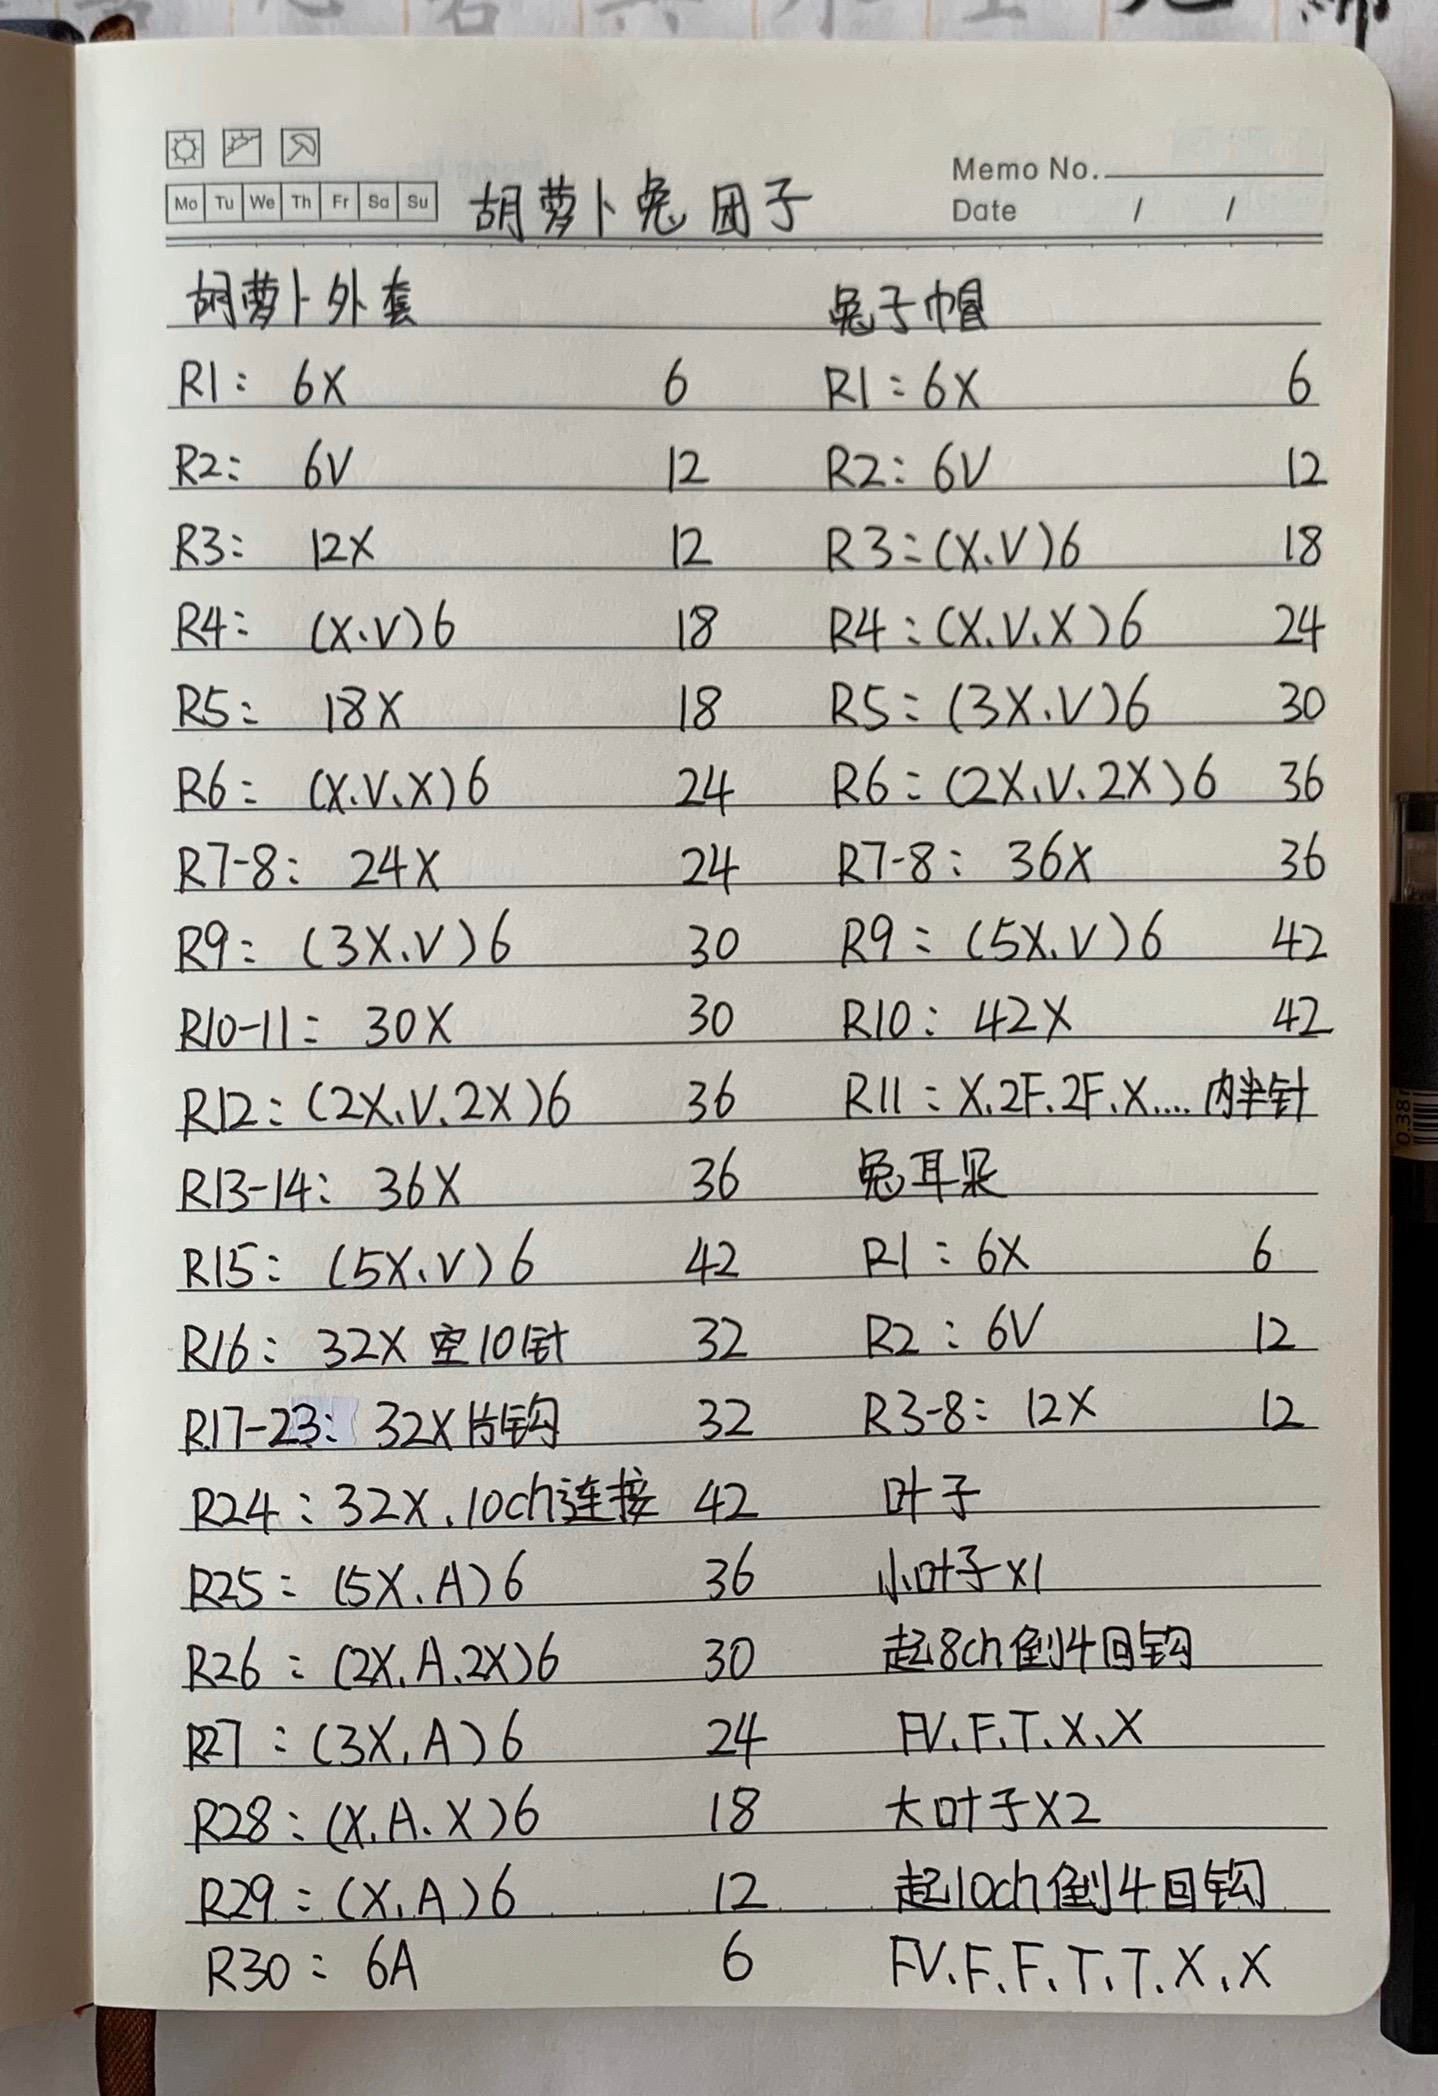 Mo Tu We Th Fr Sa Su
胡萝卜兔团子
Memo No.
Date / /
胡萝卜外套
R1: 6X 6
R2: 6V 12
R3: 12X 12
R4: (X.V)6 18
R5: 18X 18
R6: (X.V.X)6 24
R7-8: 24X 24
R9: (3X.V)6 30
R10-11: 30X 30
R12: (2X.V.2X)6 36
R13-14: 36X 36
R15: (5X.V)6 42
R16: 32X 空10针 32
R17-23: 32X片钩 32
R24: 32X.10ch连接 42
R25: (5X.A)6 36
R26: (2X.A.2X)6 30
R27: (3X.A)6 24
R28: (X.A.X)6 18
R29: (X.A)6 12
R30: 6A 6
兔子帽
R1: 6X 6
R2: 6V 12
R3: (X.V)6 18
R4: (X.V.X)6 24
R5: (3X.V)6 30
R6: (2X.V.2X)6 36
R7-8: 36X 36
R9: (5X.V)6 42
R10: 42X 42
R11: X.2F.2F.X.... 内半针
兔耳朵
R1: 6X 6
R2: 6V 12
R3-8: 12X 12
叶子
小叶子x1
起8ch倒4回钩
FV.F.T.X.X
大叶子X2
起10ch倒4回钩
FV.F.F.T.T.X.X
0.38